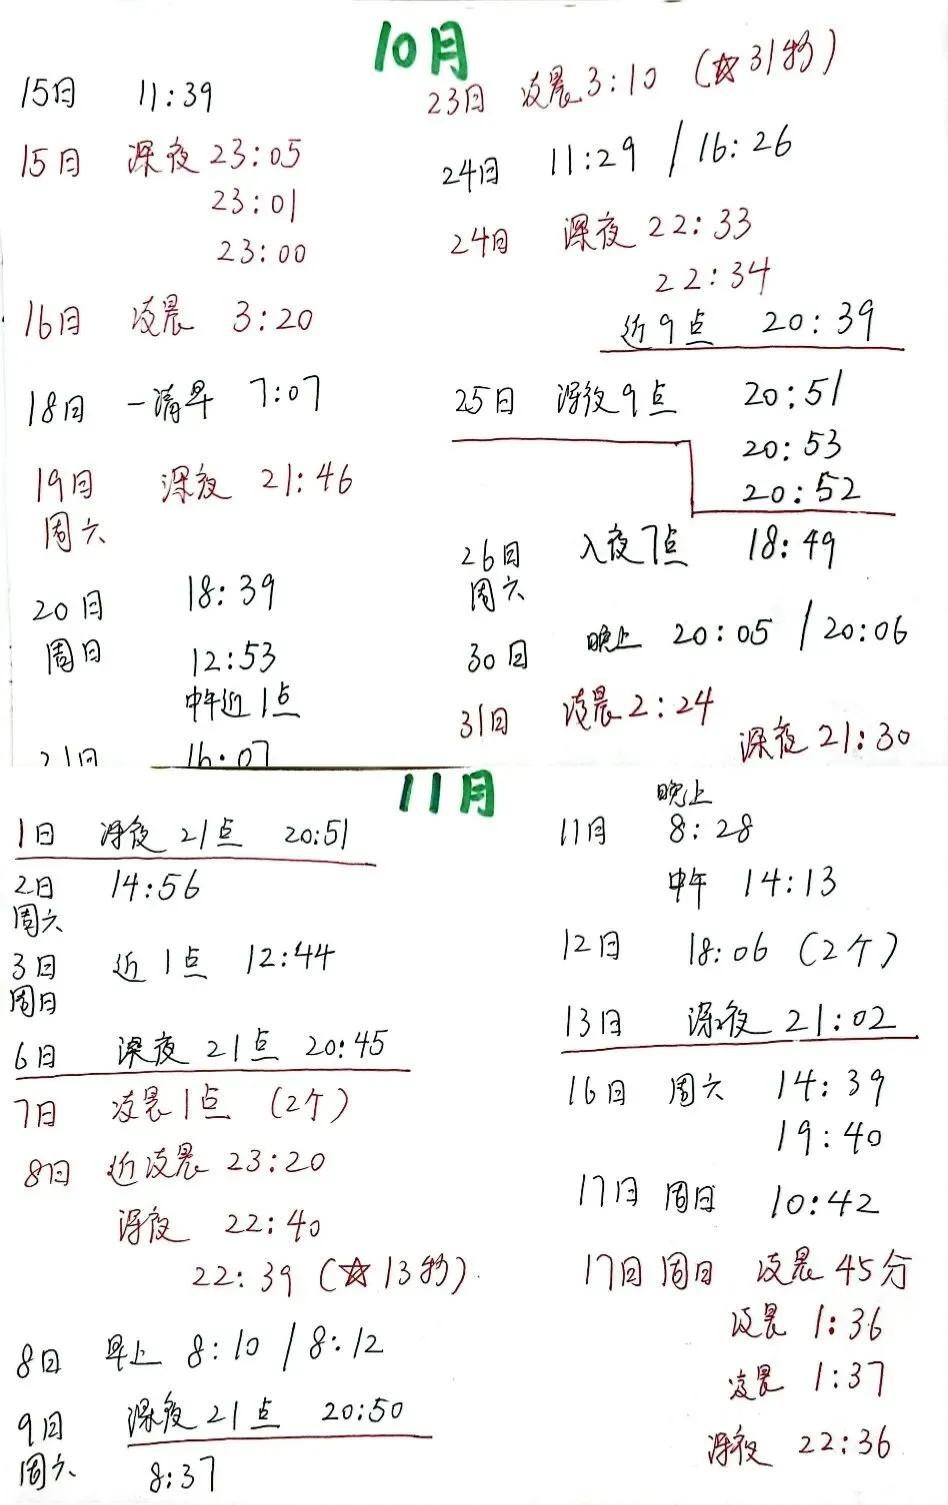 10月
15日 11:39
15日 深夜 23:05
23:01
23:00
16日 凌晨 3:20
18日 一清早 7:07
19日 深夜 21:46
周六
20日 18:39
周日 12:53
中午近1点
21日 16:07
23日 凌晨3:10 (☆31秒)
24日 11:29 / 16:26
24日 深夜 22:33
22:34
近9点 20:39
25日 深夜9点 20:51
20:53
20:52
26日 入夜7点 18:49
周六
30日 晚上 20:05 / 20:06
31日 凌晨2:24
深夜 21:30
11月
1日 深夜 21点 20:51
2日 14:56
周六
3日 近1点 12:44
周日
6日 深夜 21点 20:45
7日 凌晨1点 (2个)
8日 近凌晨 23:20
深夜 22:40
22:39 (☆13秒)
8日 早上 8:10 / 8:12
9日 深夜 21点 20:50
周六 8:37
晚上
11日 8:28
中午 14:13
12日 18:06 (2个)
13日 深夜 21:02
16日 周六 14:39
19:40
17日 周日 10:42
17日 周日 凌晨45分
凌晨 1:36
凌晨 1:37
深夜 22:36